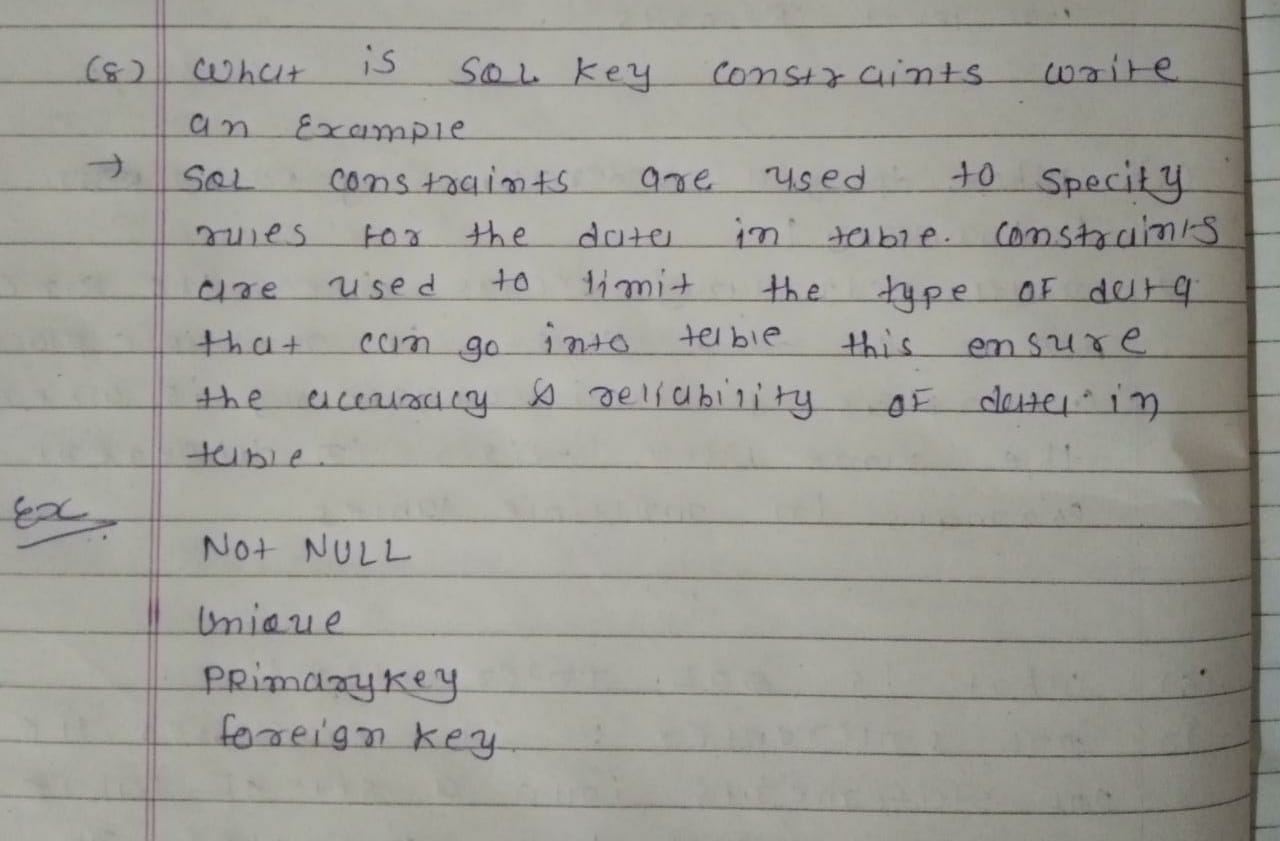 (8) What is SQL key constraints write
an Example
→ SQL constraints are used to specify
rules for the data in table. constraints
are used to limit the type of data
that can go into table this ensure
the accuracy & reliability of data in
table.
Ex.
Not NULL
Unique
PRimary key
foreign key